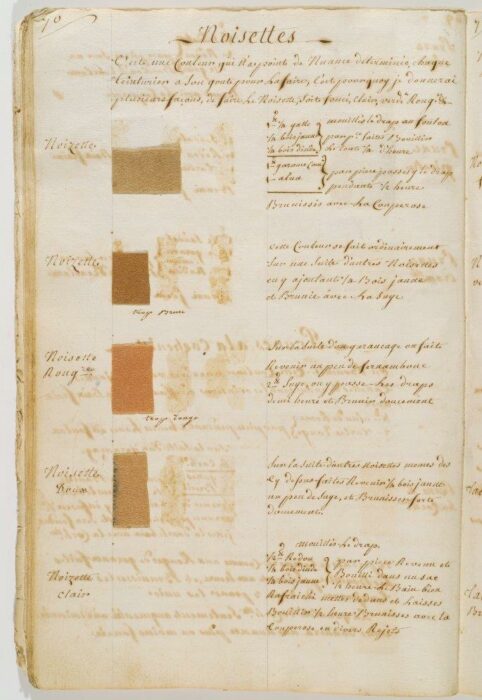 70
Noisettes
C'est une Couleur qui N'a point de Nuance determinée, chaque
teinturier a son gout pour La faire, C'est pourquoy je donnerai
plusieurs façons, de faire Le Noisette, soit foncé, Clair, verd, Roug.tre
Noizette
galle
bois jaune
bois d'inde
garance
alun
mouillés Le drap au foulon
faites Bouillir
Le tout 1/2 heure
par piece passés y Le drap
pendant 1/2 heure
Brunissés avec La Couperose
Noizette
trop Brune
Cette Couleur se fait ordinairement
Sur une Suite d'autres
en y ajoutant Bois jaune
et Brunie avec La Suye
Noisette
Roug.re
trop rouge
Sur La Suite d'un garançage on faite
Revenir un peu de fernambouc
Suye, on y passe Les draps
demi heure et Brunir doucement
Noisette
Brun
Sur La Suite d'autres Noisettes memes des
cy dessus faites Revenir bois jaune
un peu de Suye, et Brunissés forte
doucement.
Noizette
Clair
mouillés Le drap
Redou
bois d'inde
bois jaune
par piece Revenu et
Bouilli dans un sac
1/2 heure Le Bain bien
Rafraichi mettés dedans et Laissés
Bouillir 1/2 heure Brunissés avec la
Couperose en divers Rejets